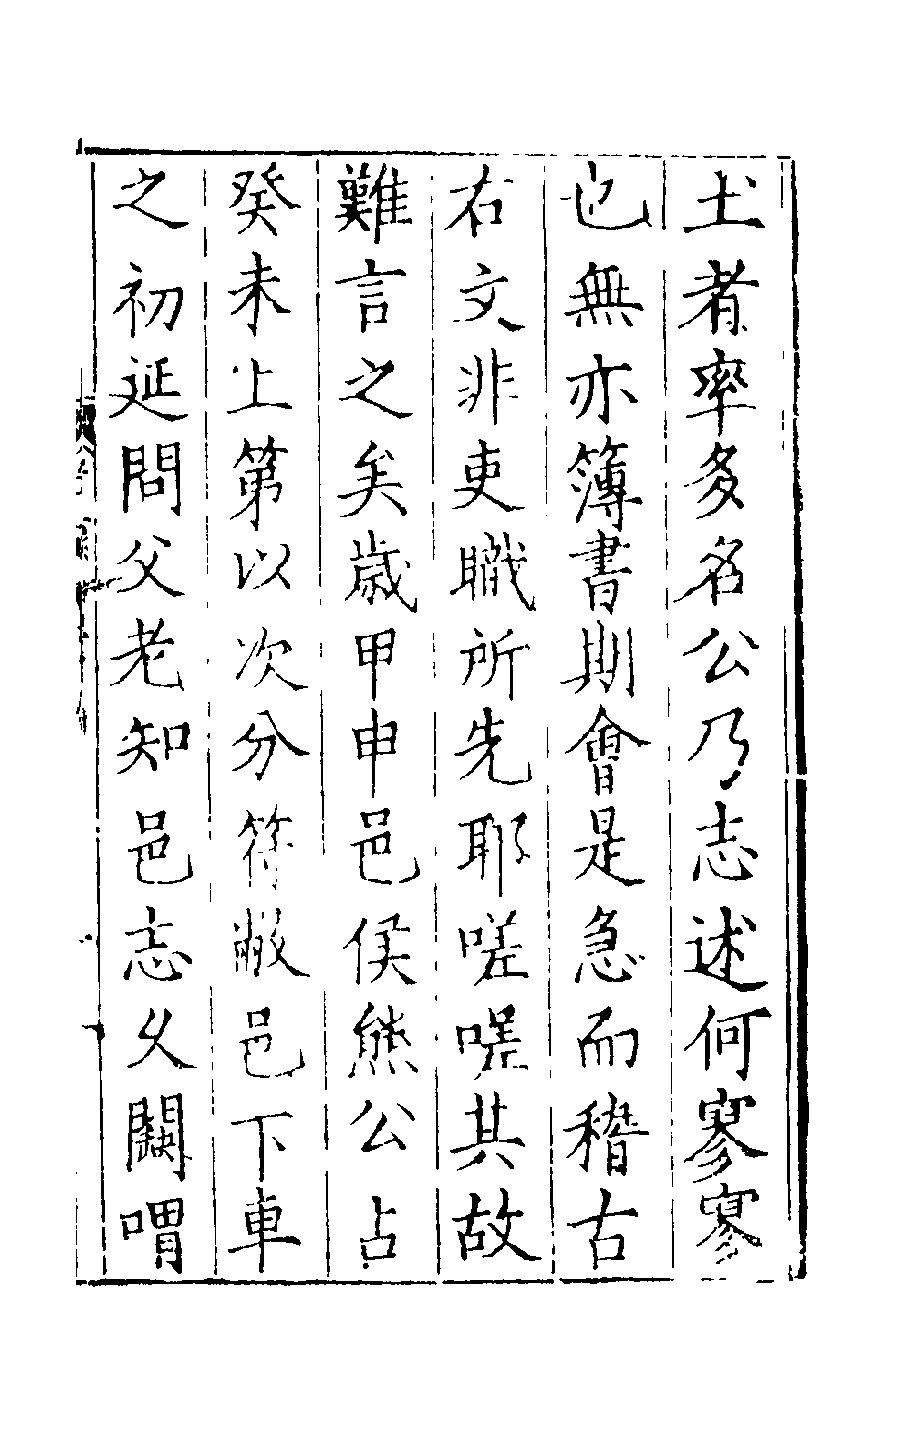 土者率多名公乃志述何寥寥
也無亦簿書期會是急而稽古
右文非吏職所先耶嗟嗟其故
難言之矣歲甲申邑侯熊公占
癸未上第以次分符敝邑下車
之初延問父老知邑志久闕喟